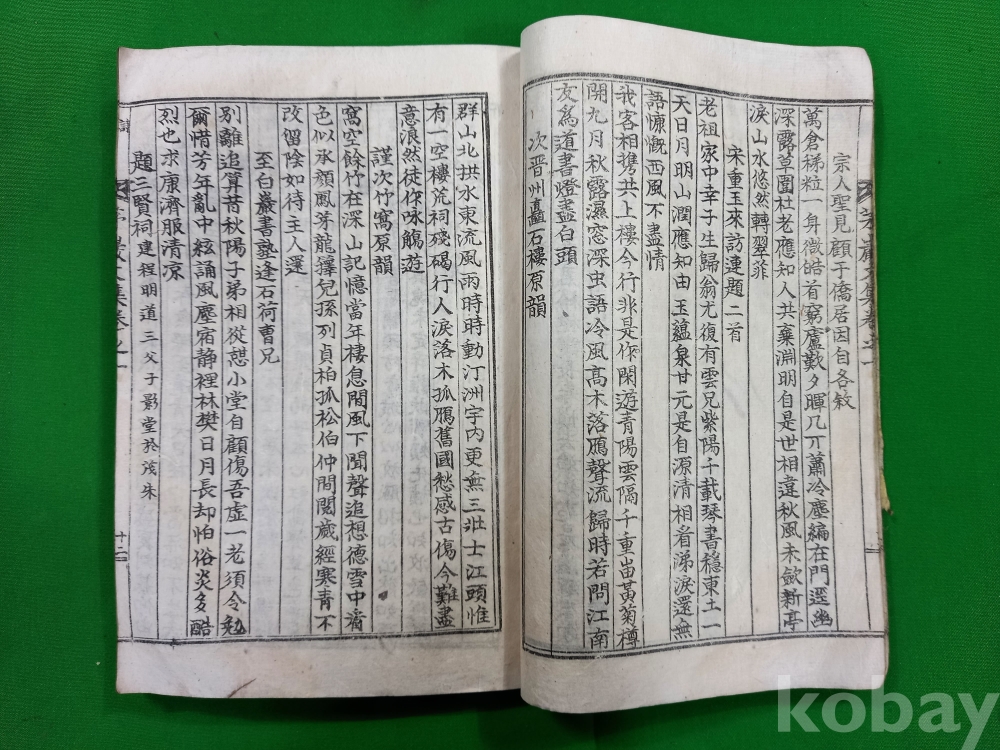 宗人聖見顧于僑居因自各敘
萬倉稊粒一身微皓首窮廬歎夕暉几丌蕭冷塵編在門逕幽
深露草圍杜老應知人共棄淵明自是世相違秋風未斂新亭
淚山水悠然轉翠菲
宋重玉來訪連題二首
老祖家中幸子生歸翁尤復有雲兄紫陽千載琴書穩東土一
天日月明山潤應知由玉蘊泉甘元是自源清相看涕淚還無
語慷慨西風不盡情
我客相携共上樓今行非是作閑遊青陽雲隔千重峀黃菊樽
開九月秋露濕窓深虫語冷風高木落鴈聲流歸時若問江南
友爲道書燈盡白頭
次晋州矗石樓原韻
群山北拱水東流風雨時時動汀洲宇内更無三壯士江頭惟
有一空樓荒祠殘碣行人淚落木孤鴈舊國愁感古傷今難盡
意浪然徒作咏觴遊
謹次竹窩原韻
窩空餘竹在深山記憶當年棲息間風下聞聲追想德雪中看
色似承顔鳳芽龍籜兒孫列貞柏孤松伯仲間閱歲經寒靑不
改留陰如待主人還
至白巖書塾逢石荷曹兄
別離追算昔秋陽子弟相從憇小堂自顧傷吾虛一老須令勉
爾惜芳年亂中絃誦風塵宿静裡林樊日月長却怕俗炎多酷
烈也求康濟服清凉
題三賢祠建程明道三父子影堂於茂朱
十二
kobay